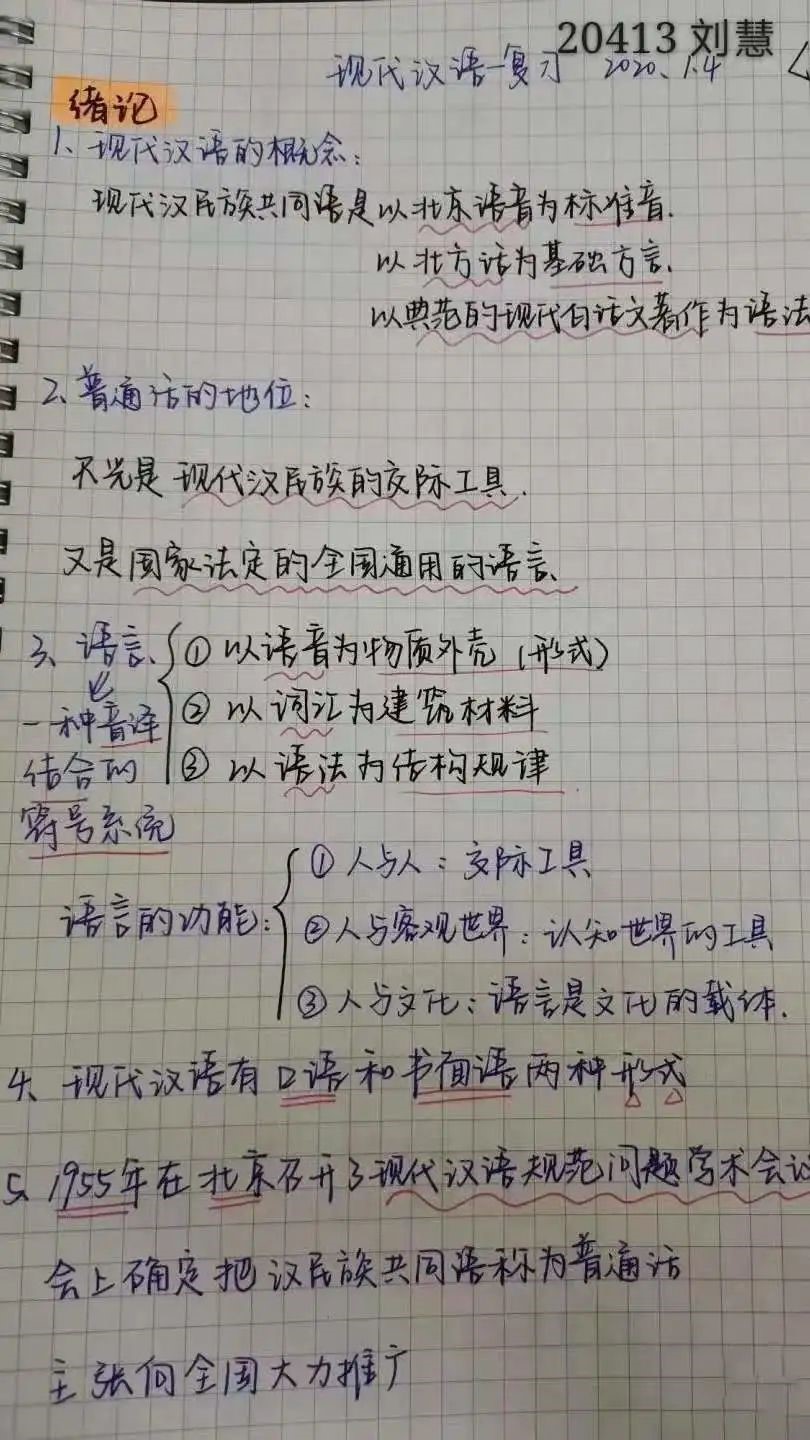 20413 刘慧
现代汉语-复习 2020.1.4
绪论
1、现代汉语的概念：
现代汉民族共同语是以北京语音为标准音.
以北方话为基础方言.
以典范的现代白话文著作为语法
2、普通话的地位：
不光是现代汉民族的交际工具.
又是国家法定的全国通用的语言.
3、语言 ① 以语音为物质外壳（形式）
一种音译 ② 以词汇为建筑材料
结合的 ③ 以语法为结构规律
符号系统
① 人与人：交际工具
语言的功能： ② 人与客观世界：认知世界的工具
③ 人与文化：语言是文化的载体.
4、现代汉语有口语和书面语两种形式
5、1955年在北京召开了现代汉语规范问题学术会议
会上确定把汉民族共同语称为普通话
主张向全国大力推广